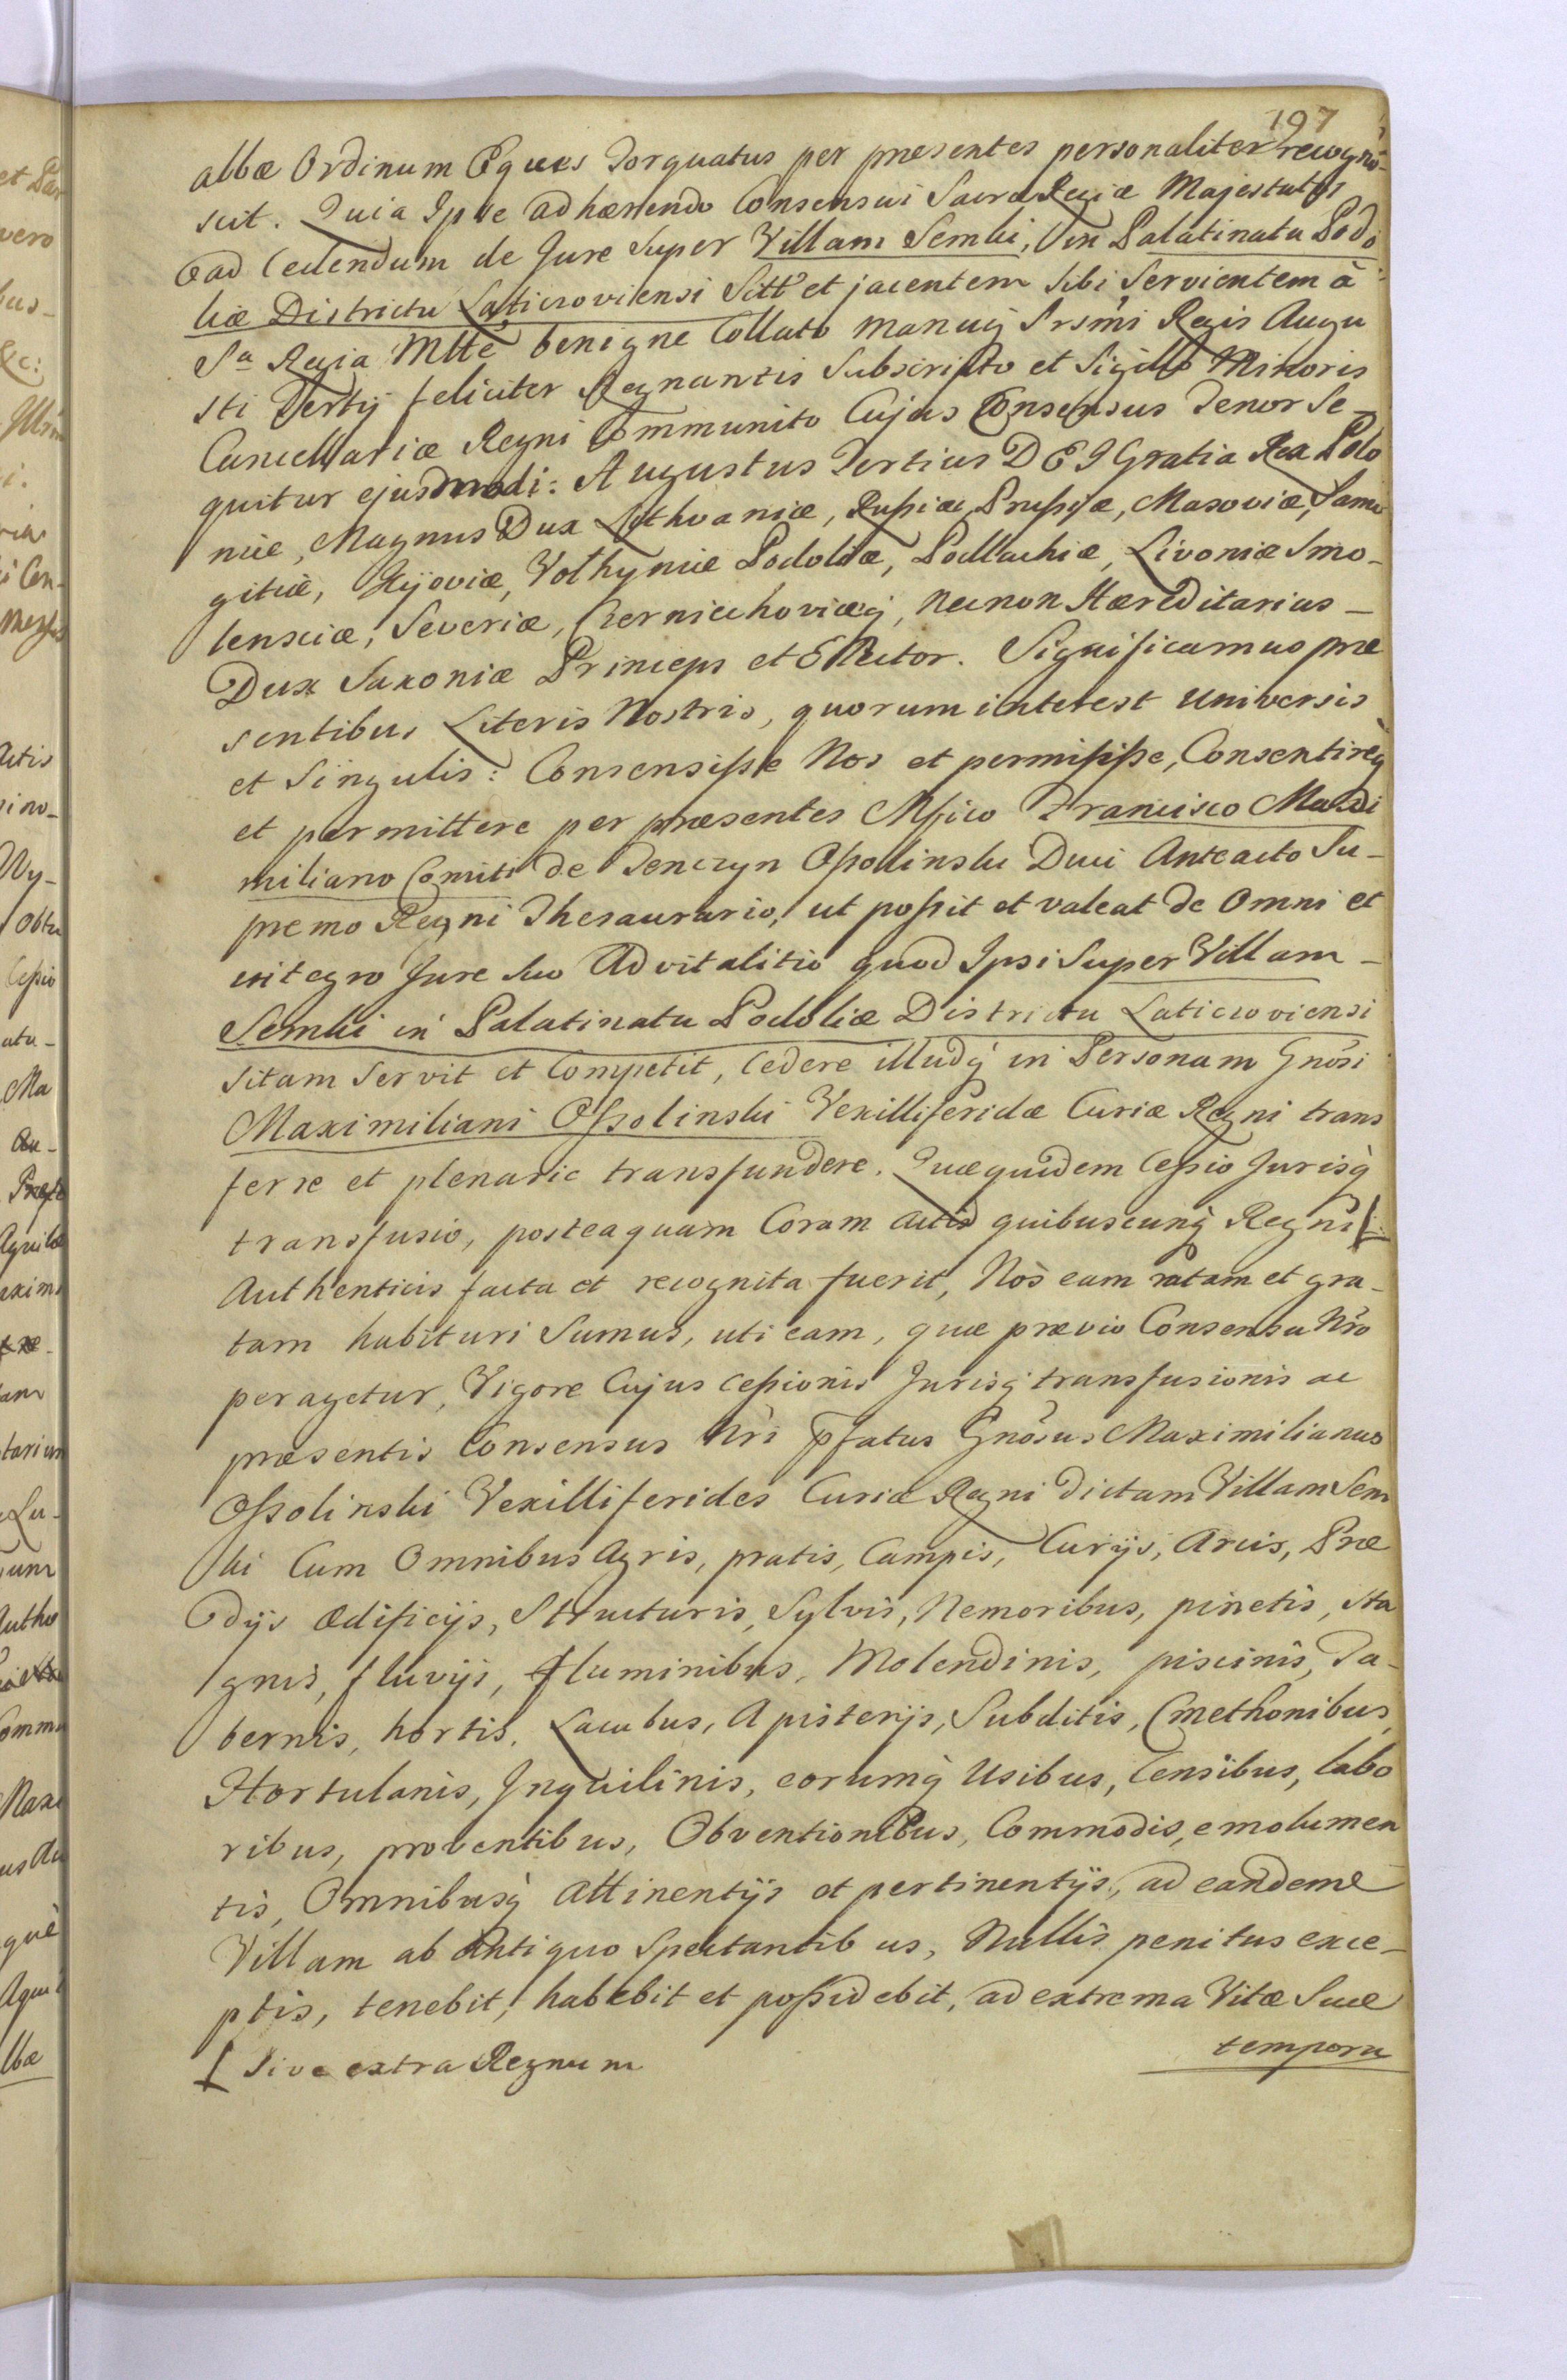 197
albæ Ordinum Eques Torquatus per præsentes personaliter recogno-
scit. Quia Ipse adhærendo Consensui Sacræ Regiæ Majestatis
ad Cedendum de Jure Super Villam Semki, in Palatinatu Podo
liæ Districtu Laticzoviensi Sitt et jacentem Sibi Servientem à
Sa Regia Mtte benigne Collato manuq Srsmi Regis Augu
sti Tertij feliciter Regnantis Subscripto et Sigillo Minoris
Cancellariæ Regni Communito Cujus Consensus Tenor Se-
quitur ejusdmodi: Augustus Tertius DEI Gratia Rex Polo
niæ, Magnus Dux Lithvaniæ, Rußiæ, Prußiæ, Masoviæ, Samo
gitiæ, Kijoviæ, Volhyniæ Podoliæ, Podlachiæ, Livoniæ Smo-
lensciæ, Severiæ, Czerniechoviæq, necnon Hæreditarius-
Dux Saxoniæ Princeps et Elector. Significamus præ
sentibus Literis Nostris, quorum interest Universis
et Singulis: Consensiße Nos et permisiße, Consentireq
et permittere per præsentes Mfico Francisco Maxi
miliano Comiti de Tenczyn Oßolinski Duci Anteacto Su-
premo Regni Thesaurario, ut poßit et valeat de Omni et
integro Jure suo Advitalitio quod Ipsi Super Villam-
Semki in Palatinatu Podoliæ Districtu Laticzoviensi
sitam Servit et Competit, Cedere illudq in Personam Gnosi
Maximiliani Oßolinski Vexilliferidæ Curiæ Regni trans
ferre et plenarie transfundere. Quæquidem Ceßio Jurisq
transfusio, posteaquam Coram Actis quibuscunq Regni
Authenticis facta et recognita fuerit, Nos eam ratam et gra-
tam habituri Sumus, uti eam, quæ prævio Consensu Nro
peragetur, Vigore Cujus Ceßionis Jurisq transfusionis ac
præsentis Consensus Nri pfatus Gnosus Maximilianus
Oßolinski Vexilliferides Curiæ Regni dictam Villam Sem
ki Cum Omnibus Agris, pratis, Campis, Curijs, Areis, Præ
dijs Ædificijs, Structuris, Sylvis, Nemoribus, pinetis, sta
gnis, fluvijs, fluminibus, Molendinis, piscinis, Ta-
bernis, hortis, Lacubus, Apisterijs, Subditis, Cmethonibus,
Hortulanis, Inquilinis, eorumq Usibus, Censibus, labo
ribus, proventibus, Obventionibus, Commodis, emolumen
tis, Omnibusq Attinentijs et pertinentijs, ad eandem
Villam ab Antiquo Spectantibus, Nullis penitus exce-
ptis, tenebit, habebit et poßidebit, ad extrema Vitæ Suæ
tempora
sive extra Regnum